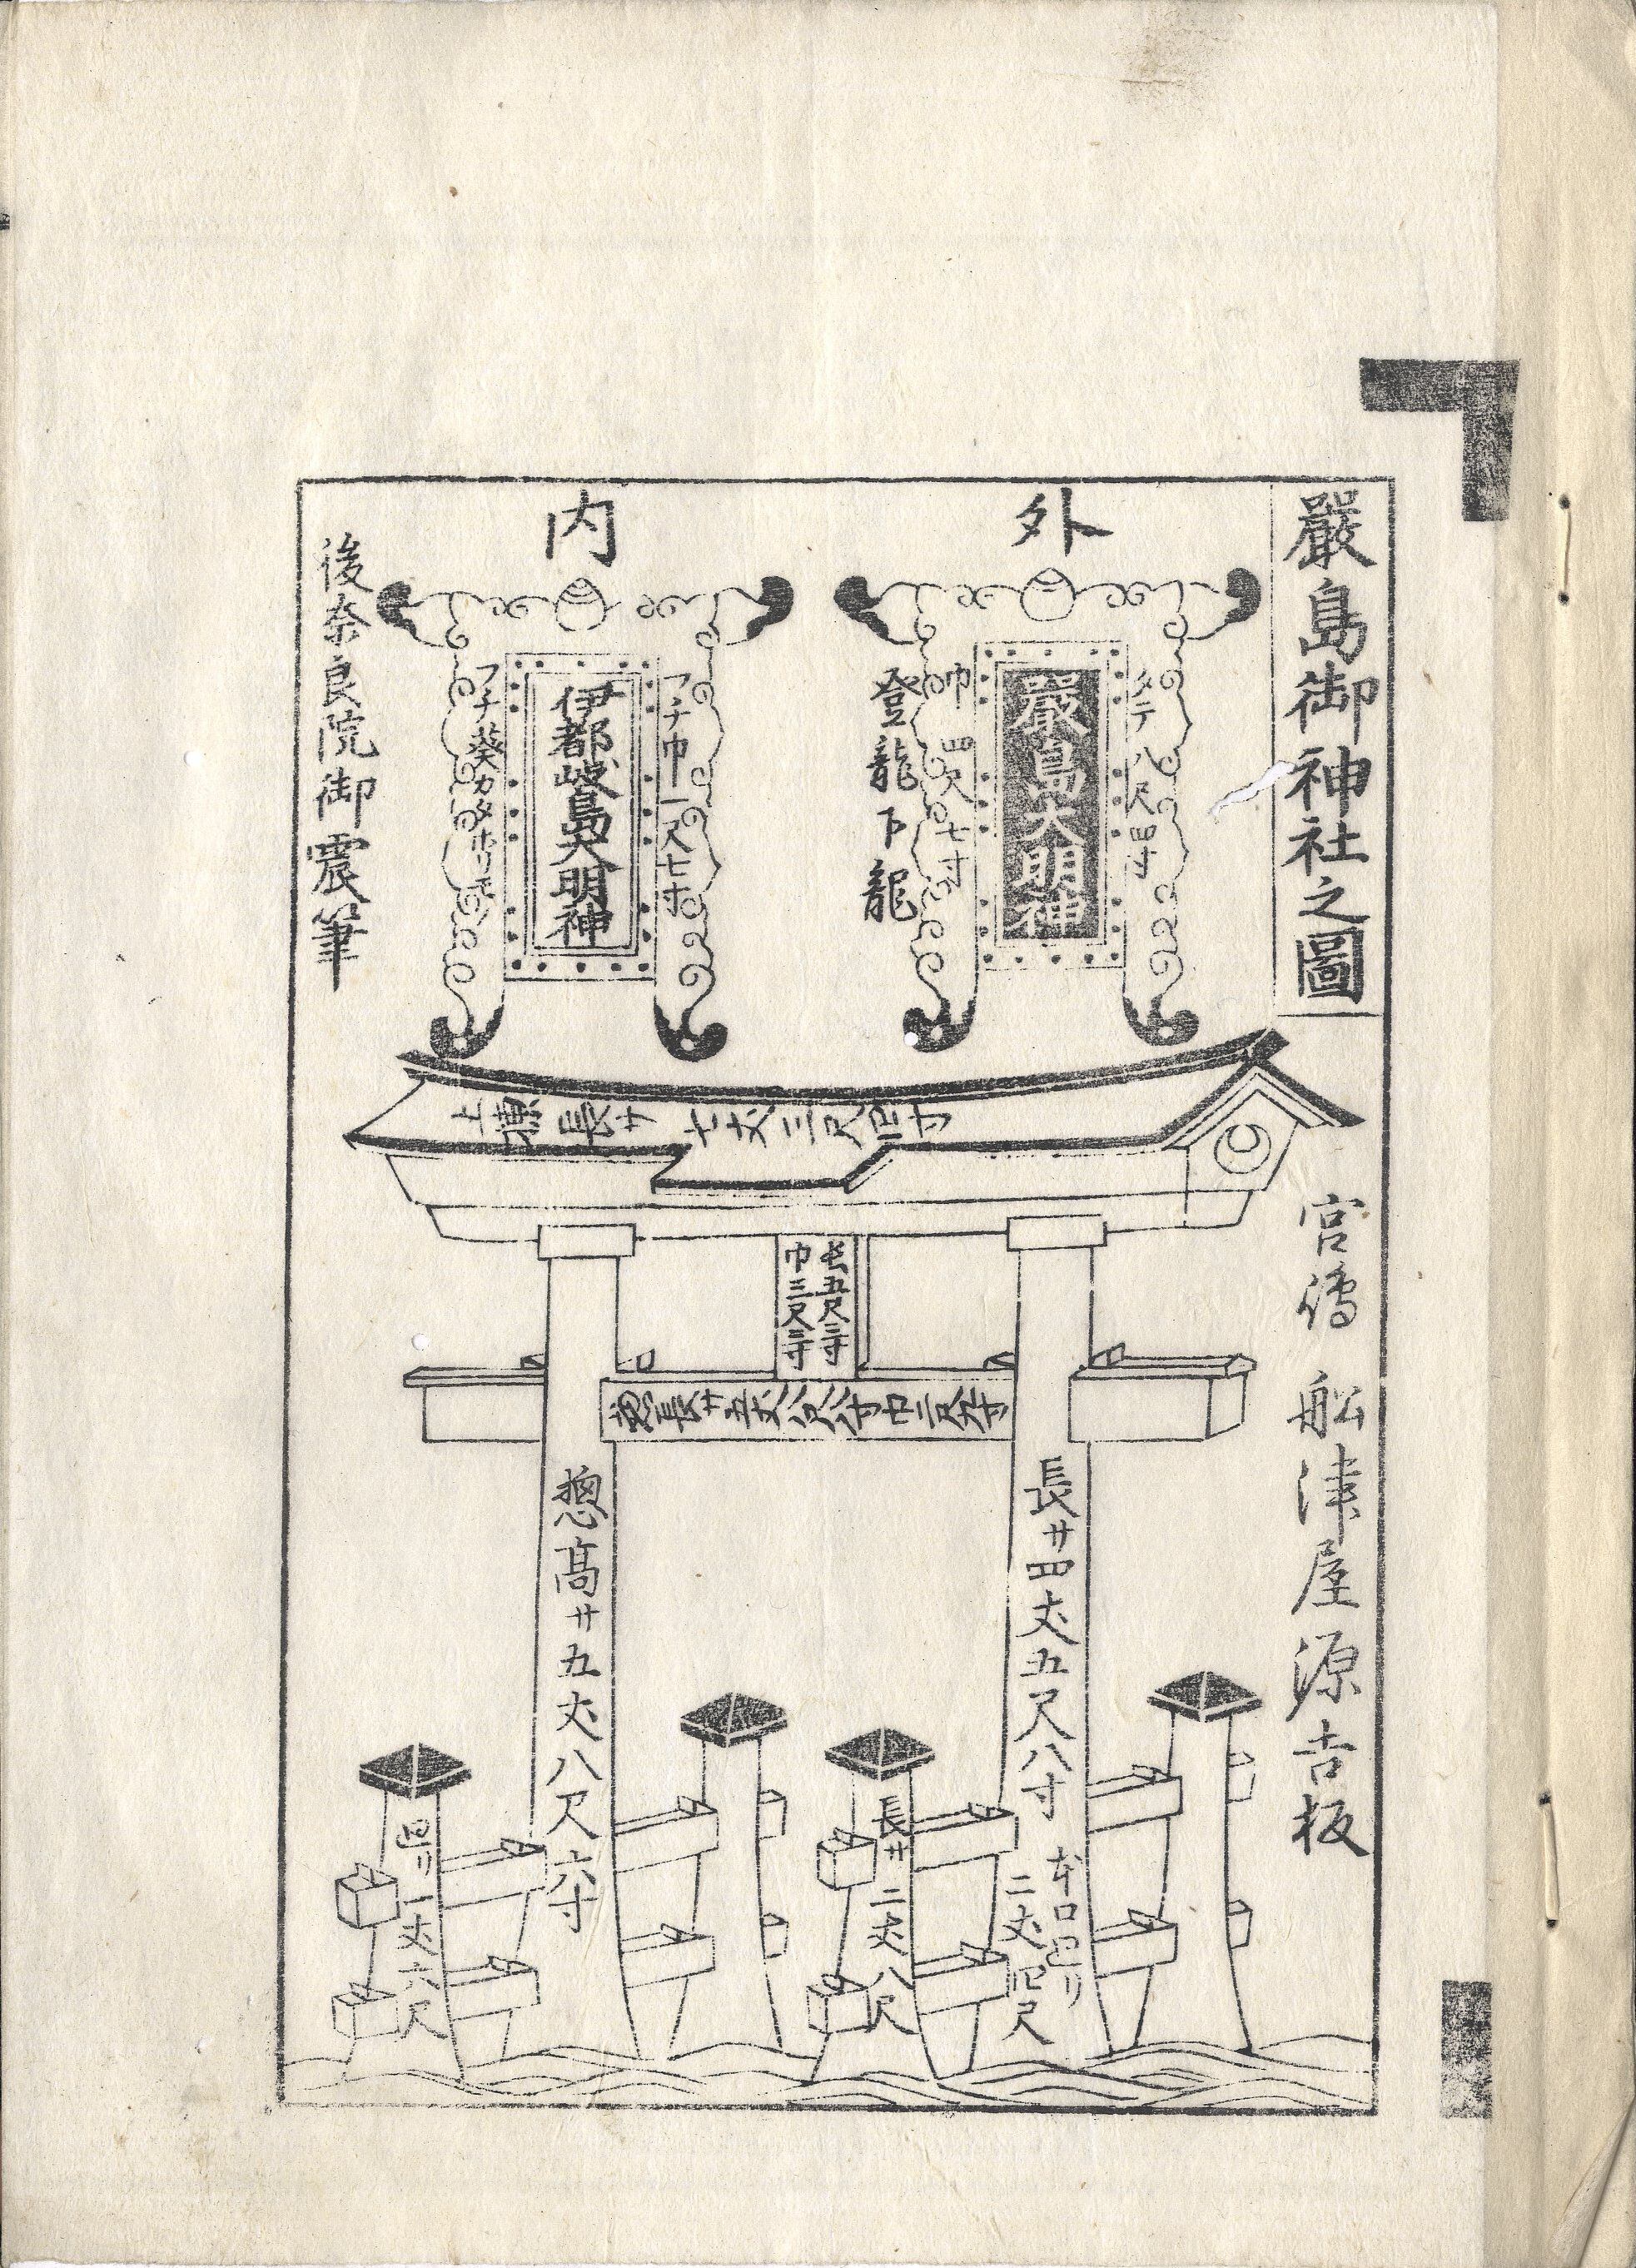 嚴島御神社之圖
宮嶋 船津屋源吉板
外
タテ八尺四寸
嚴島大明神
巾四尺七寸
登龍下龍
内
フチ巾一尺七寸
伊都岐島大明神
フチ葵カタホリ
後奈良院御震筆
上棟長サ七丈三尺四寸
長五尺三寸
巾三尺三寸
長サ四丈五尺八寸
本口回リ
二丈四尺
惣髙サ五丈八尺六寸
長サ二丈八尺
回リ一丈六尺